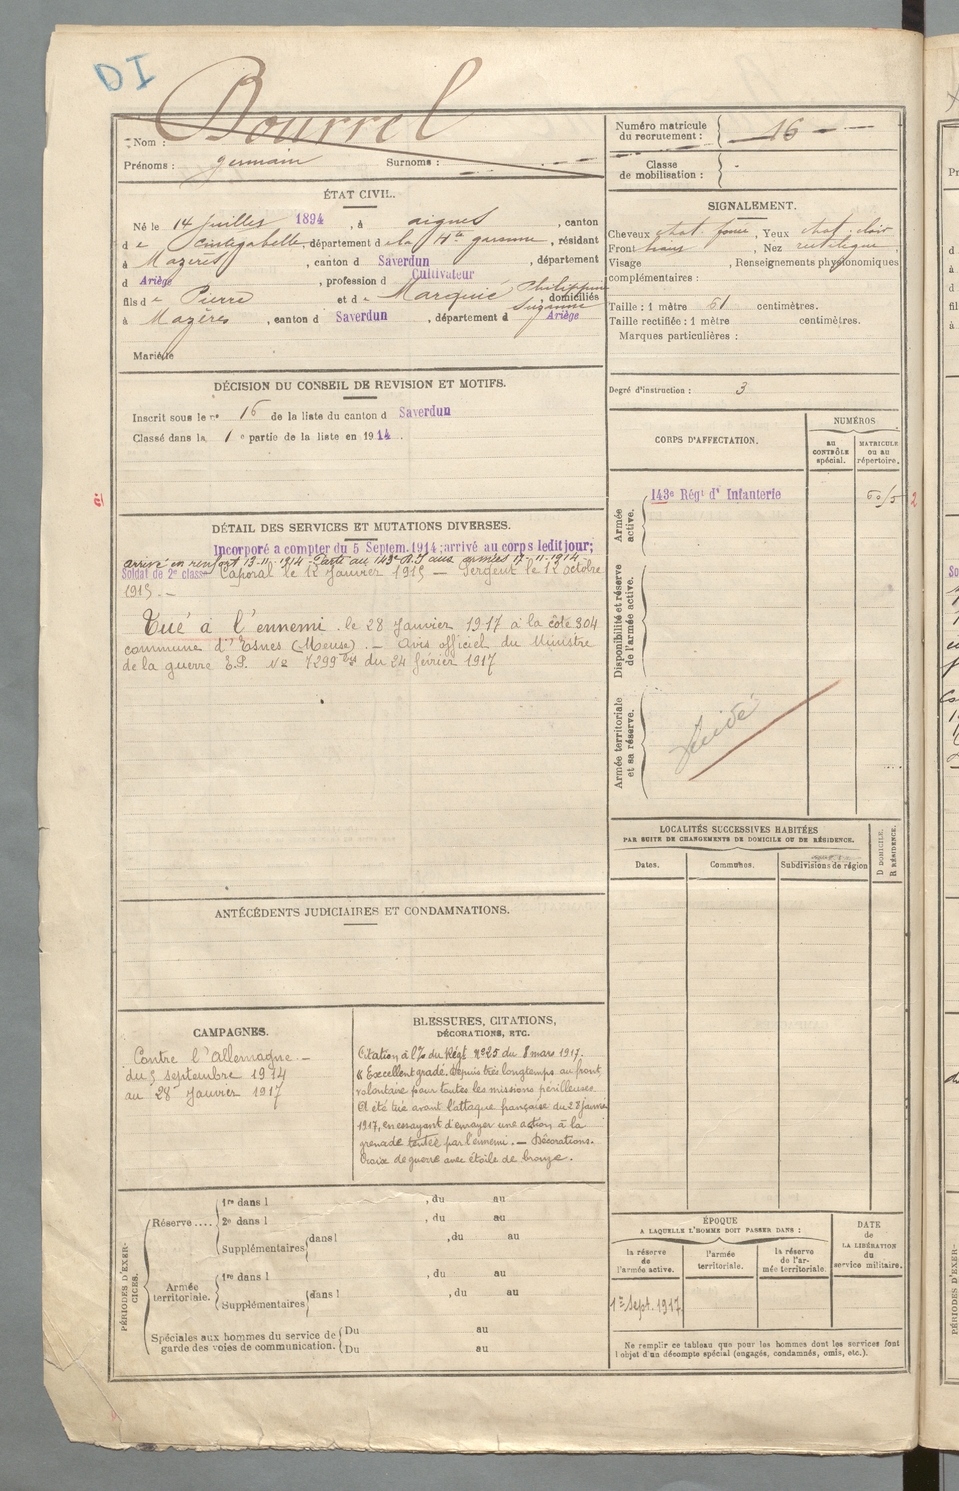 DI
Nom : Bourrel
Prénoms : germain Surnoms :
ÉTAT CIVIL.
Né le 14 Juillet 1894, à aignes, canton
de Cintegabelle, département de la Hte garonne, résidant
à Mazères, canton d Saverdun, département
d Ariège, profession d Cultivateur
fils de Pierre et de Marquié Philippine Suzanne, domiciliés
à Mazères, canton d Saverdun, département d Ariège
Marié
DÉCISION DU CONSEIL DE REVISION ET MOTIFS.
Inscrit sous le no 16 de la liste du canton d Saverdun
Classé dans la 1e partie de la liste en 1914.
DÉTAIL DES SERVICES ET MUTATIONS DIVERSES.
Incorporé a compter du 5 Septem. 1914; arrivé au corps ledit jour;
arrivé en renfort 13-11-1914. Passé au 143e R.I aux armées 17-11-1914
Soldat de 2e classe Caporal le 12 Janvier 1915 — Sergent le 12 octobre
1915. —
Tué à l'ennemi le 28 Janvier 1917 à la côte 304
commune d'Esnes (Meuse). — Avis officiel du Ministre
de la guerre No 7299 du 24 février 1917
ANTÉCÉDENTS JUDICIAIRES ET CONDAMNATIONS.
CAMPAGNES.
Contre l'Allemagne. —
du 5 septembre 1914
au 28 Janvier 1917
BLESSURES, CITATIONS,
DÉCORATIONS, ETC.
Citation à l'o/ du Régt No 25 du 8 mars 1917.
« Excellent gradé, depuis très longtemps au front,
volontaire pour toutes les missions périlleuses.
A été tué avant l'attaque française du 28 janvier
1917, en essayant d'enrayer une action à la
grenade tentée par l'ennemi. — Décorations.
Croix de guerre avec étoile de bronze.
PÉRIODES D'EXERCICES.
Réserve ....
1re dans l , du au
2e dans l , du au
Supplémentaires dans l , du au
Armée territoriale.
1re dans l , du au
Supplémentaires dans l , du au
Spéciales aux hommes du service de
garde des voies de communication.
Du au
Du au
Numéro matricule
du recrutement : 16
Classe
de mobilisation : -
SIGNALEMENT.
Cheveux chat. foncé, Yeux chat. clair
Front , Nez rectiligne
Visage , Renseignements physionomiques
complémentaires :
Taille : 1 mètre 61 centimètres.
Taille rectifiée : 1 mètre centimètres.
Marques particulières :
Degré d'instruction : 3
CORPS D'AFFECTATION.
NUMÉROS
au
CONTRÔLE
spécial.
MATRICULE
ou au
répertoire.
Armée
active.
143e Régt d' Infanterie
2
Disponibilité et réserve
de l'armée active.
Armée territoriale
et sa réserve.
LOCALITÉS SUCCESSIVES HABITÉES
PAR SUITE DE CHANGEMENTS DE DOMICILE OU DE RÉSIDENCE.
Dates.
Communes.
Subdivisions de région
D DOMICILE.
R RÉSIDENCE.
ÉPOQUE
A LAQUELLE L'HOMME DOIT PASSER DANS :
DATE
de
LA LIBÉRATION
du
service militaire.
la réserve
de
l'armée active.
l'armée
territoriale.
la réserve
de l'ar-
mée territoriale.
1er Sept. 1917
Ne remplir ce tableau que pour les hommes dont les services font
l'objet d'un décompte spécial (engagés, condamnés, omis, etc.).